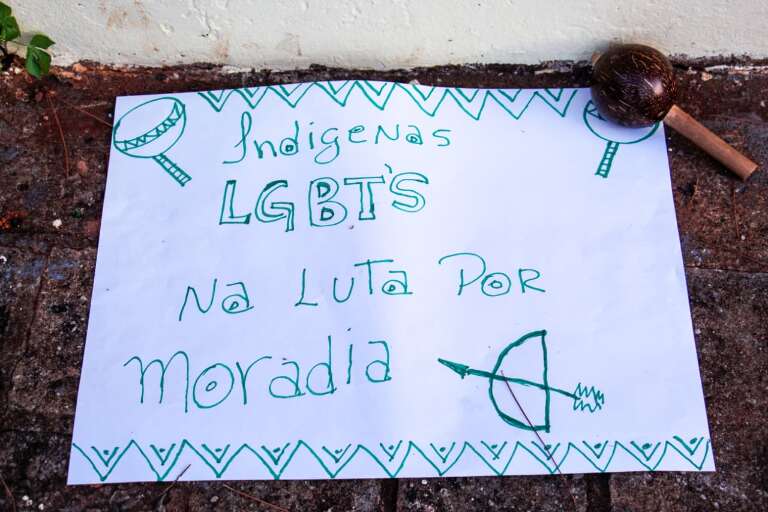 Indigenas
LGBT'S
Na LUTa POR
Moradia